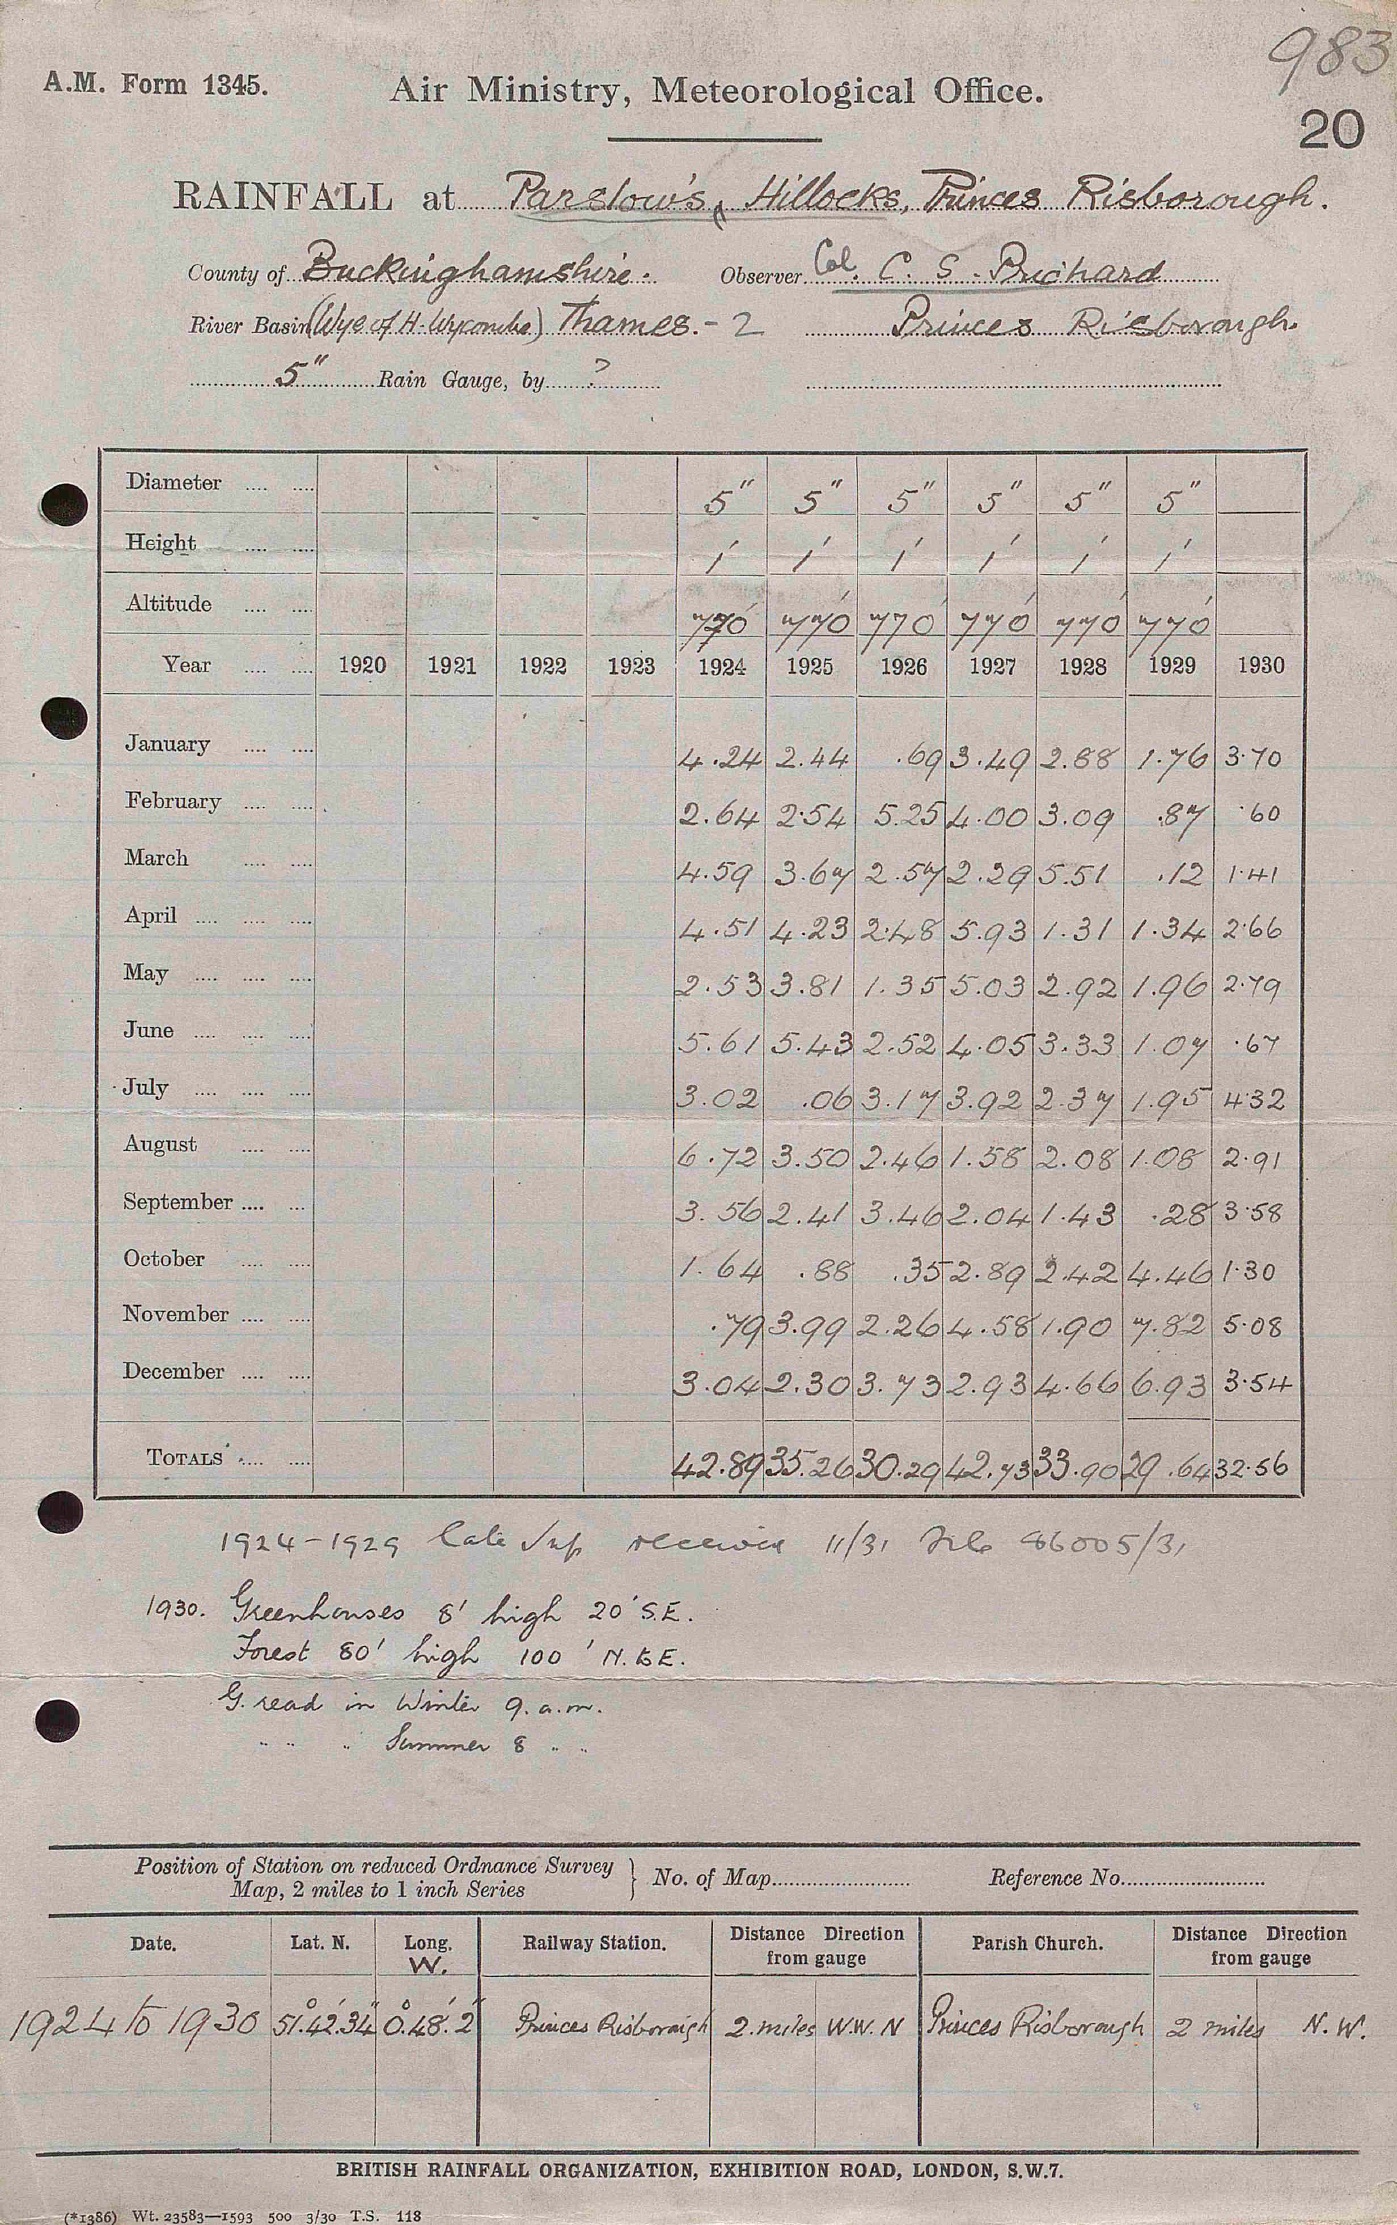 983
A.M. Form 1345. Air Ministry, Meteorological Office.
20
RAINFALL at Parslow's Hillocks, Princes Risborough.
County of Buckinghamshire. Observer Col. C. S. Prichard
River Basin (Wye of H. Wycombe) Thames. - 2 Princes Risborough.
5" Rain Gauge, by ?
Diameter 5" 5" 5" 5" 5" 5"
Height 1' 1' 1' 1' 1' 1'
Altitude 770' 770' 770' 770' 770' 770'
Year 1920 1921 1922 1923 1924 1925 1926 1927 1928 1929 1930
January 4.24 2.44 .69 3.49 2.88 1.76 3.70
February 2.64 2.54 5.25 4.00 3.09 .87 .60
March 4.59 3.67 2.57 2.29 5.51 .12 1.41
April 4.51 4.23 2.48 5.93 1.31 1.34 2.66
May 2.53 3.81 1.35 5.03 2.92 1.96 2.79
June 5.61 5.43 2.52 4.05 3.33 1.07 .67
July 3.02 .06 3.17 3.92 2.37 1.95 4.32
August 6.72 3.50 2.46 1.58 2.08 1.08 2.91
September 3.56 2.41 3.46 2.04 1.43 .28 3.58
October 1.64 .88 .35 2.89 2.42 4.46 1.30
November .79 3.99 2.26 4.58 1.90 7.82 5.08
December 3.04 2.30 3.73 2.93 4.66 6.93 3.54
TOTALS 42.89 35.26 30.29 42.73 33.90 29.64 32.56
1924-1929 late received 11/31 File 86005/31
1930. Greenhouses 8' high 20' S.E.
Forest 80' high 100' N. to E.
G. read in Winter 9. a.m.
" " " Summer 8 " "
Position of Station on reduced Ordnance Survey
Map, 2 miles to 1 inch Series } No. of Map Reference No.
Date. Lat. N. Long. W. Railway Station. Distance Direction from gauge Parish Church. Distance Direction from gauge
1924 to 1930 51°.42'.34" 0°.48'.2" Princes Risborough 2. miles W.W.N Princes Risborough 2 miles N.W.
BRITISH RAINFALL ORGANIZATION, EXHIBITION ROAD, LONDON, S.W.7.
(*1386) Wt. 23583—1593 500 3/30 T.S. 118